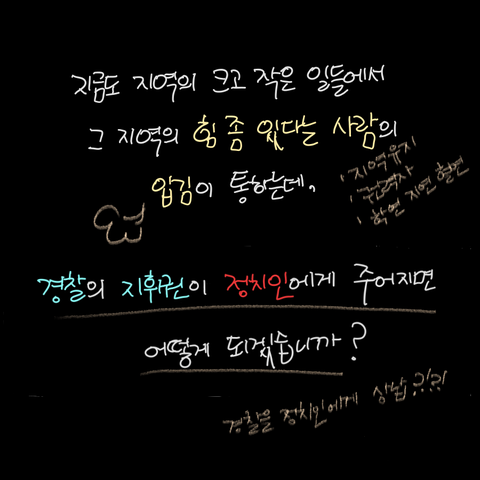 지금도 지역의 크고 작은 일들에서
그 지역의 힘 좀 있다는 사람의
입김이 통하는데,
· 지역유지
· 권력자
· 학연 지연 혈연
경찰의 지휘권이 정치인에게 주어지면
어떻게 되겠습니까?
경찰을 정치인에게 상납?!?!